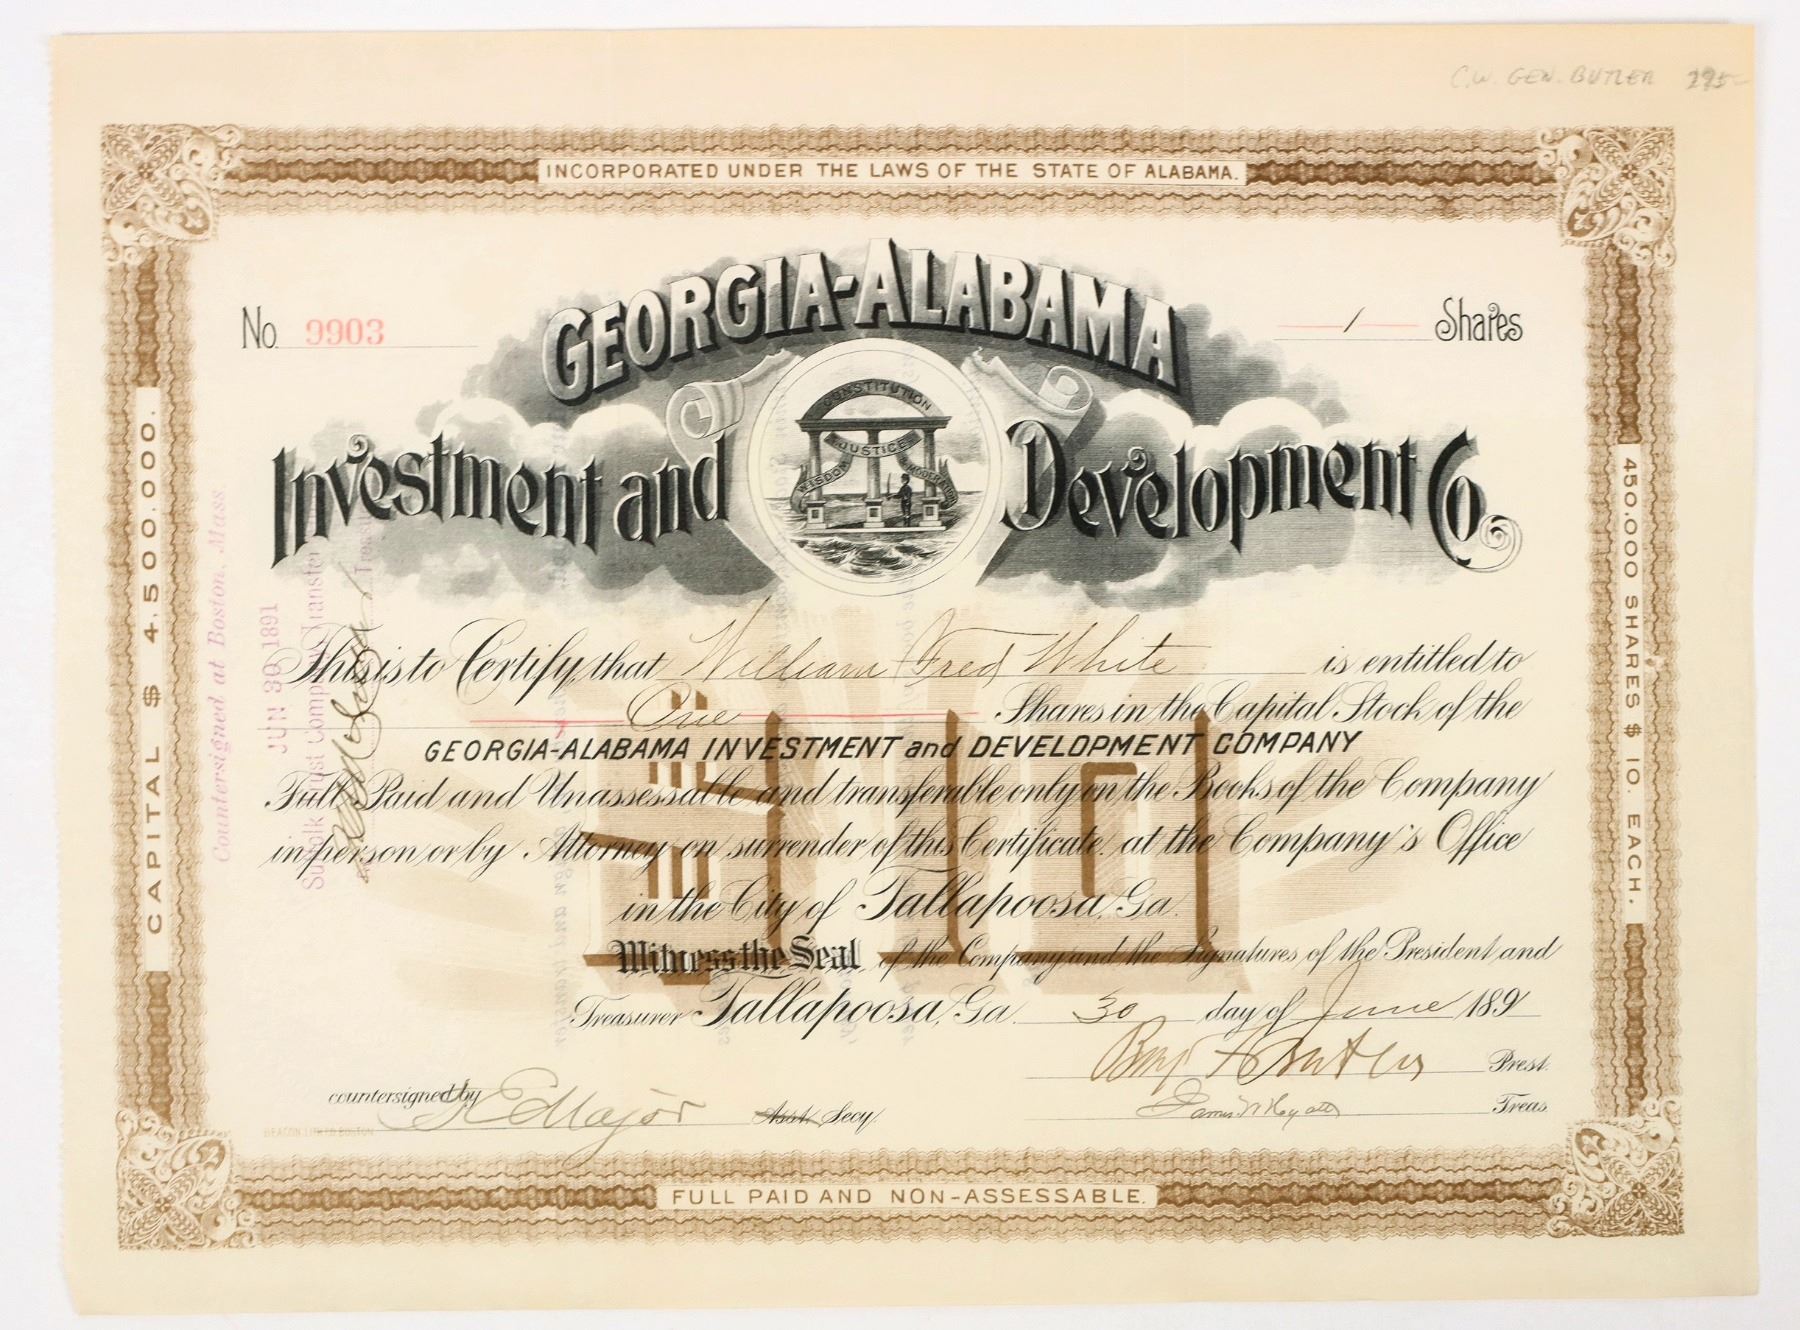 C.W. GEN. BUTLER 225-
INCORPORATED UNDER THE LAWS OF THE STATE OF ALABAMA.
No. 9903
1 Shares
GEORGIA-ALABAMA
Investment and Development Co.
CONSTITUTION
JUSTICE
WISDOM
MODERATION
CAPITAL $ 4,500.000.
450.000 SHARES $ 10. EACH.
Countersigned at Boston, Mass.
JUN 30 1891
Suffolk Trust Company, Transfer
Treasurer
This is to Certify, that William Fred White is entitled to
One Shares in the Capital Stock of the
GEORGIA-ALABAMA INVESTMENT and DEVELOPMENT COMPANY
Full Paid and Unassessable and transferable only on the Books of the Company
in person or by Attorney on surrender of this Certificate, at the Company's Office
in the City of Tallapoosa, Ga.
Witness the Seal of the Company and the Signatures of the President and
Treasurer Tallapoosa, Ga. 30 day of June 1891
$10
Benj F Butler Prest.
countersigned by E Major Asst. Secy.
James W Hyatt Treas.
BEACON LITH. CO. BOSTON
FULL PAID AND NON-ASSESSABLE.